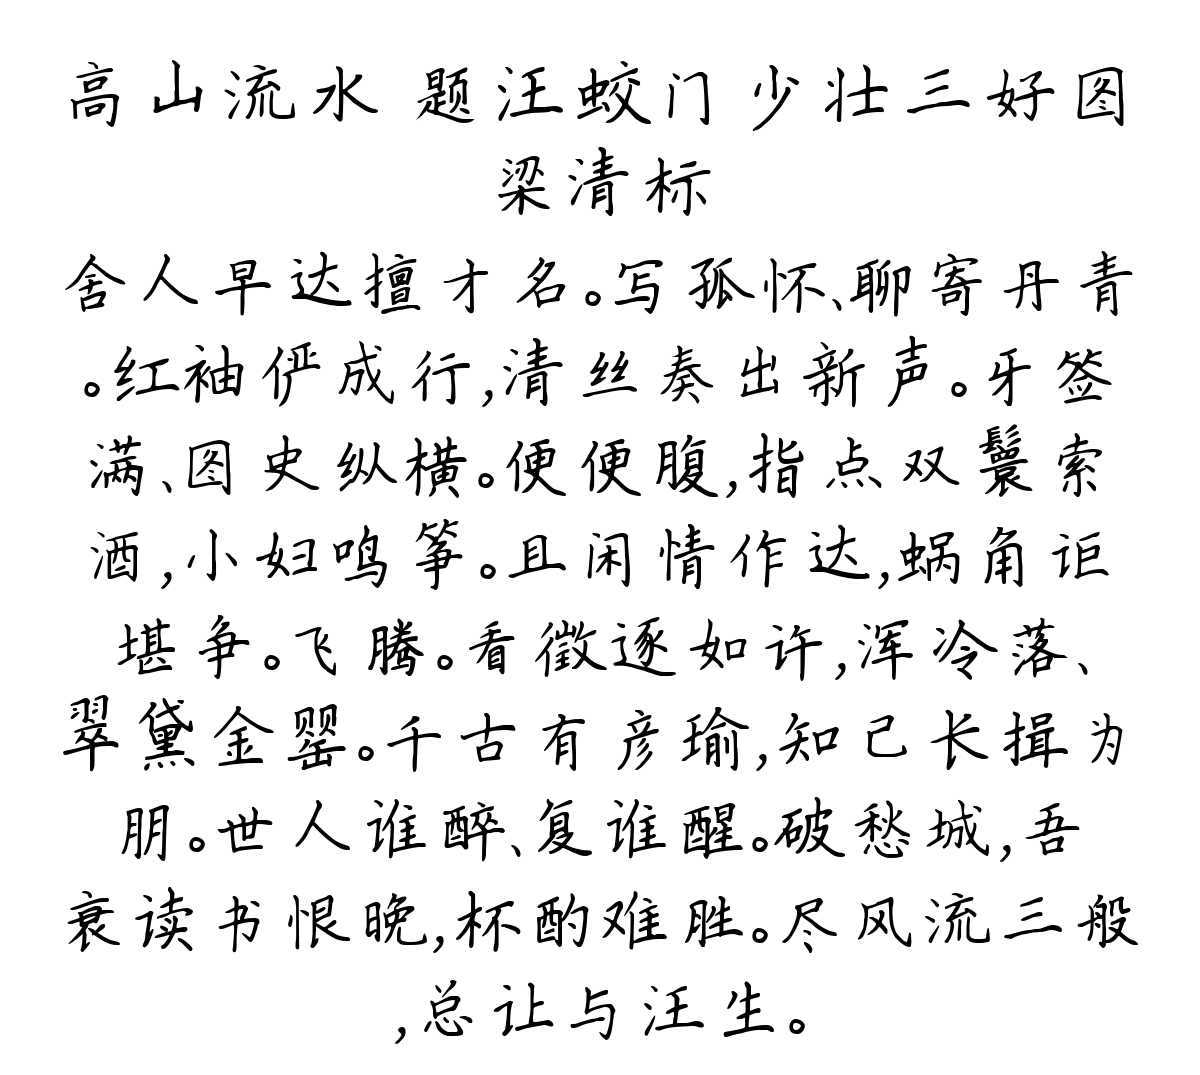 高山流水 题汪蛟门少壮三好图
梁清标
舍人早达擅才名。写孤怀、聊寄丹青
。红袖俨成行,清丝奏出新声。牙签
满、图史纵横。便便腹,指点双鬟索
酒,小妇鸣筝。且闲情作达,蜗角讵
堪争。飞腾。看徵逐如许,浑冷落、
翠黛金罂。千古有彦瑜,知己长揖为
朋。世人谁醉、复谁醒。破愁城,吾
衰读书恨晚,杯酌难胜。尽风流三般
,总让与汪生。